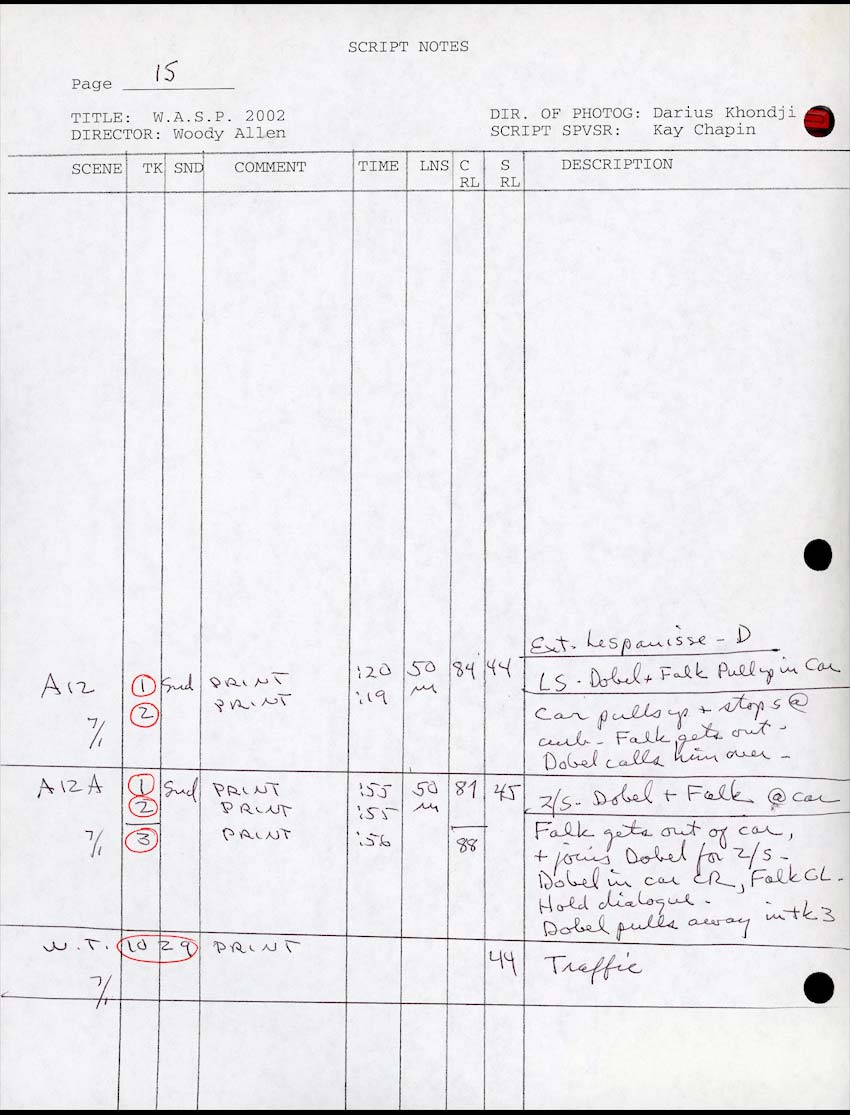 SCRIPT NOTES
Page 15
TITLE: W.A.S.P. 2002 DIR. OF PHOTOG: Darius Khondji
DIRECTOR: Woody Allen SCRIPT SPVSR: Kay Chapin
SCENE TK SND COMMENT TIME LNS C RL S RL DESCRIPTION
Ext. Lespanisse - D
A12 1 Snd PRINT :20 50 84 44 LS - Dobel + Falk Pull up in Car
2 PRINT :19 m
7/1 Car pulls up + stops @
curb - Falk gets out -
Dobel calls him over -
A12A 1 Snd PRINT :55 50 81 45 2/S - Dobel + Falk @ car
2 PRINT :55 m
7/1 3 PRINT :56 88 Falk gets out of car,
+ joins Dobel for 2/S -
Dobel in car CR, Falk CL.
Hold dialogue -
Dobel pulls away in tk 3
W.T. 1029 PRINT 44 Traffic
7/1